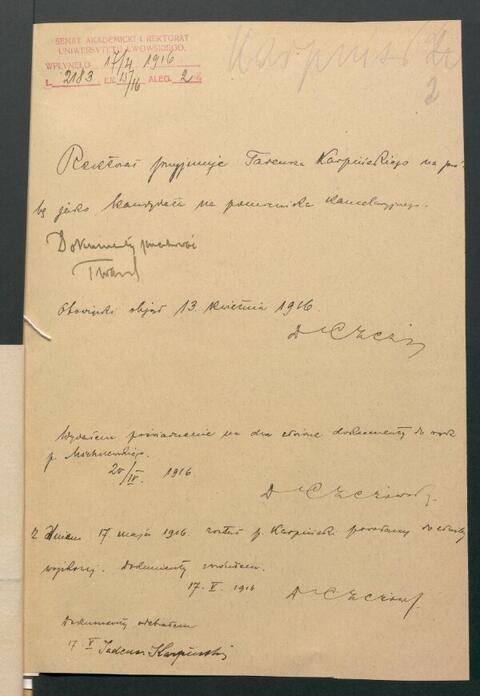 SENAT AKADEMICKI I REKTORAT
UNIWERSYTETU LWOWSKIEGO.
WPŁYNĘŁO 17/4 1916
L. 2183 EX. 15/16 ALEG. 2
Karpiński
2
Rektorat przyjmuje Tadeusza Karpińskiego na pró-
bę jako kandydata na pomocnika kancelaryjnego.
Dokumenty
Obowiązki objął 13. kwietnia 1916.
Wydałem poświadczenie na dwa dokumenty do rąk
p.
20/IV. 1916
Z dniem 17 maja 1916. został p. Karpiński powołany do służby
wojskowej. Dokumenty zwróciłem.
17. V. 1916
Dokumenty odebrałem
17 V Tadeusz Karpiński